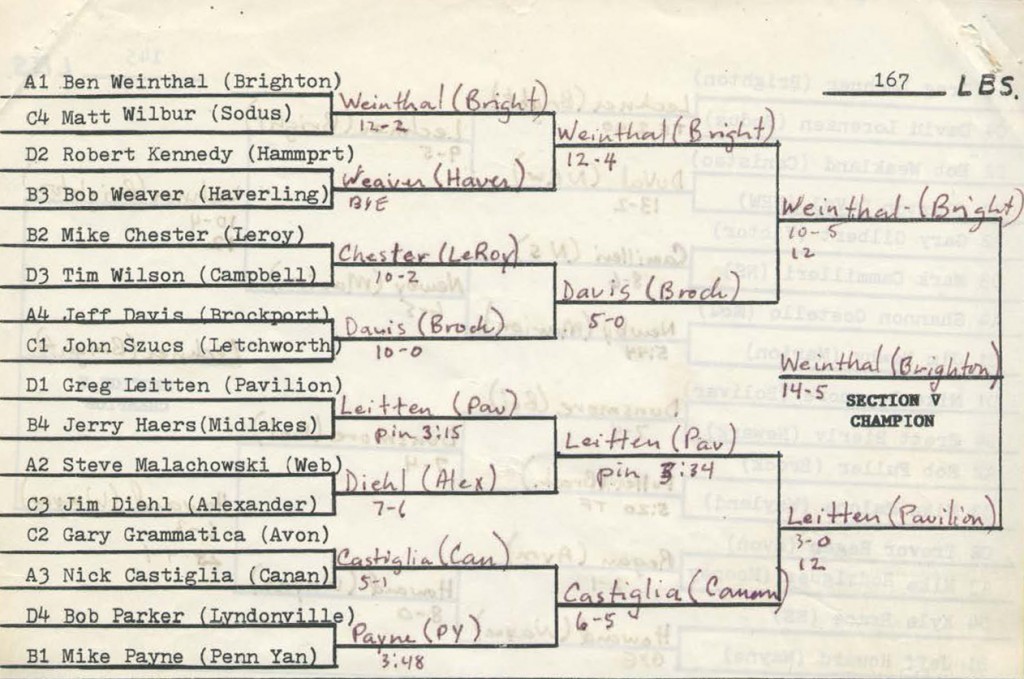 167 LBS.
A1 Ben Weinthal (Brighton)
C4 Matt Wilbur (Sodus)
D2 Robert Kennedy (Hammprt)
B3 Bob Weaver (Haverling)
B2 Mike Chester (Leroy)
D3 Tim Wilson (Campbell)
A4 Jeff Davis (Brockport)
C1 John Szucs (Letchworth)
D1 Greg Leitten (Pavilion)
B4 Jerry Haers(Midlakes)
A2 Steve Malachowski (Web)
C3 Jim Diehl (Alexander)
C2 Gary Grammatica (Avon)
A3 Nick Castiglia (Canan)
D4 Bob Parker (Lyndonville)
B1 Mike Payne (Penn Yan)
Weinthal (Bright)
12-2
Weaver (Haver)
BYE
Chester (LeRoy)
10-2
Davis (Brock)
10-0
Leitten (Pav)
pin 3:15
Diehl (Alex)
7-6
Castiglia (Can)
5-1
Payne (PY)
3:48
Weinthal (Bright)
12-4
Davis (Brock)
5-0
Leitten (Pav)
pin 3:34
Castiglia (Canan)
6-5
Weinthal (Bright)
10-5
12
Leitten (Pavilion)
3-0
12
Weinthal (Brighton)
14-5
SECTION V
CHAMPION